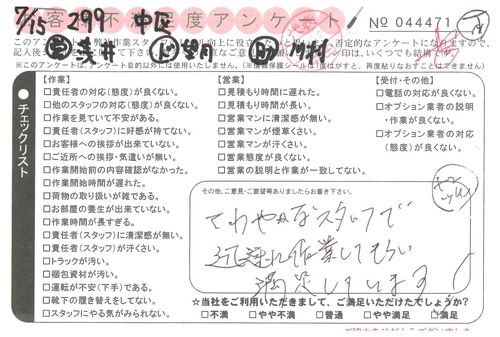 お客様不満足度アンケート
№ 044471
7/15 299 中区
※このアンケートはアンケート目的以外には使用いたしません。
チェックリスト
【作業】
□責任者の対応(態度)が良くない。
□他のスタッフの対応(態度)が良くない。
□作業を見ていて不安がある。
□責任者(スタッフ)に好感が持てない。
□お客様への挨拶が出来ていない。
□ご近所への挨拶・気遣いが無い。
□作業開始前の内容確認がなかった。
□作業開始時間が遅れた。
□荷物の取り扱いが雑である。
□お部屋の養生が出来ていない。
□作業時間が長すぎる。
□責任者(スタッフ)に清潔感が無い。
□責任者(スタッフ)が汗くさい。
□トラックが汚い。
□梱包資材が汚い。
□運転が安(下手)である。
□靴下の履き替えをしてない。
□スタッフにやる気がみられない。
【営業】
□見積もり時間に遅れた。
□見積もり時間が長い。
□営業マンに清潔感が無い。
□営業マンが煙草くさい。
□営業マンが汗くさい。
□営業態度が良くない。
□営業の説明と作業が一致してない。
【受付・その他】
□電話の対応が良くない。
□オプション業者の説明
・作業が良くない。
□オプション業者の対応
(態度)が良くない。
その他、ご意見・ご要望等ありましたらお書き下さい。
さわやかなスタッフで
作業してもらい
満足しています!
☆当社をご利用いただきまして、ご満足いただけたでしょうか?
□不満 □やや不満 □普通 □やや満足 □満足